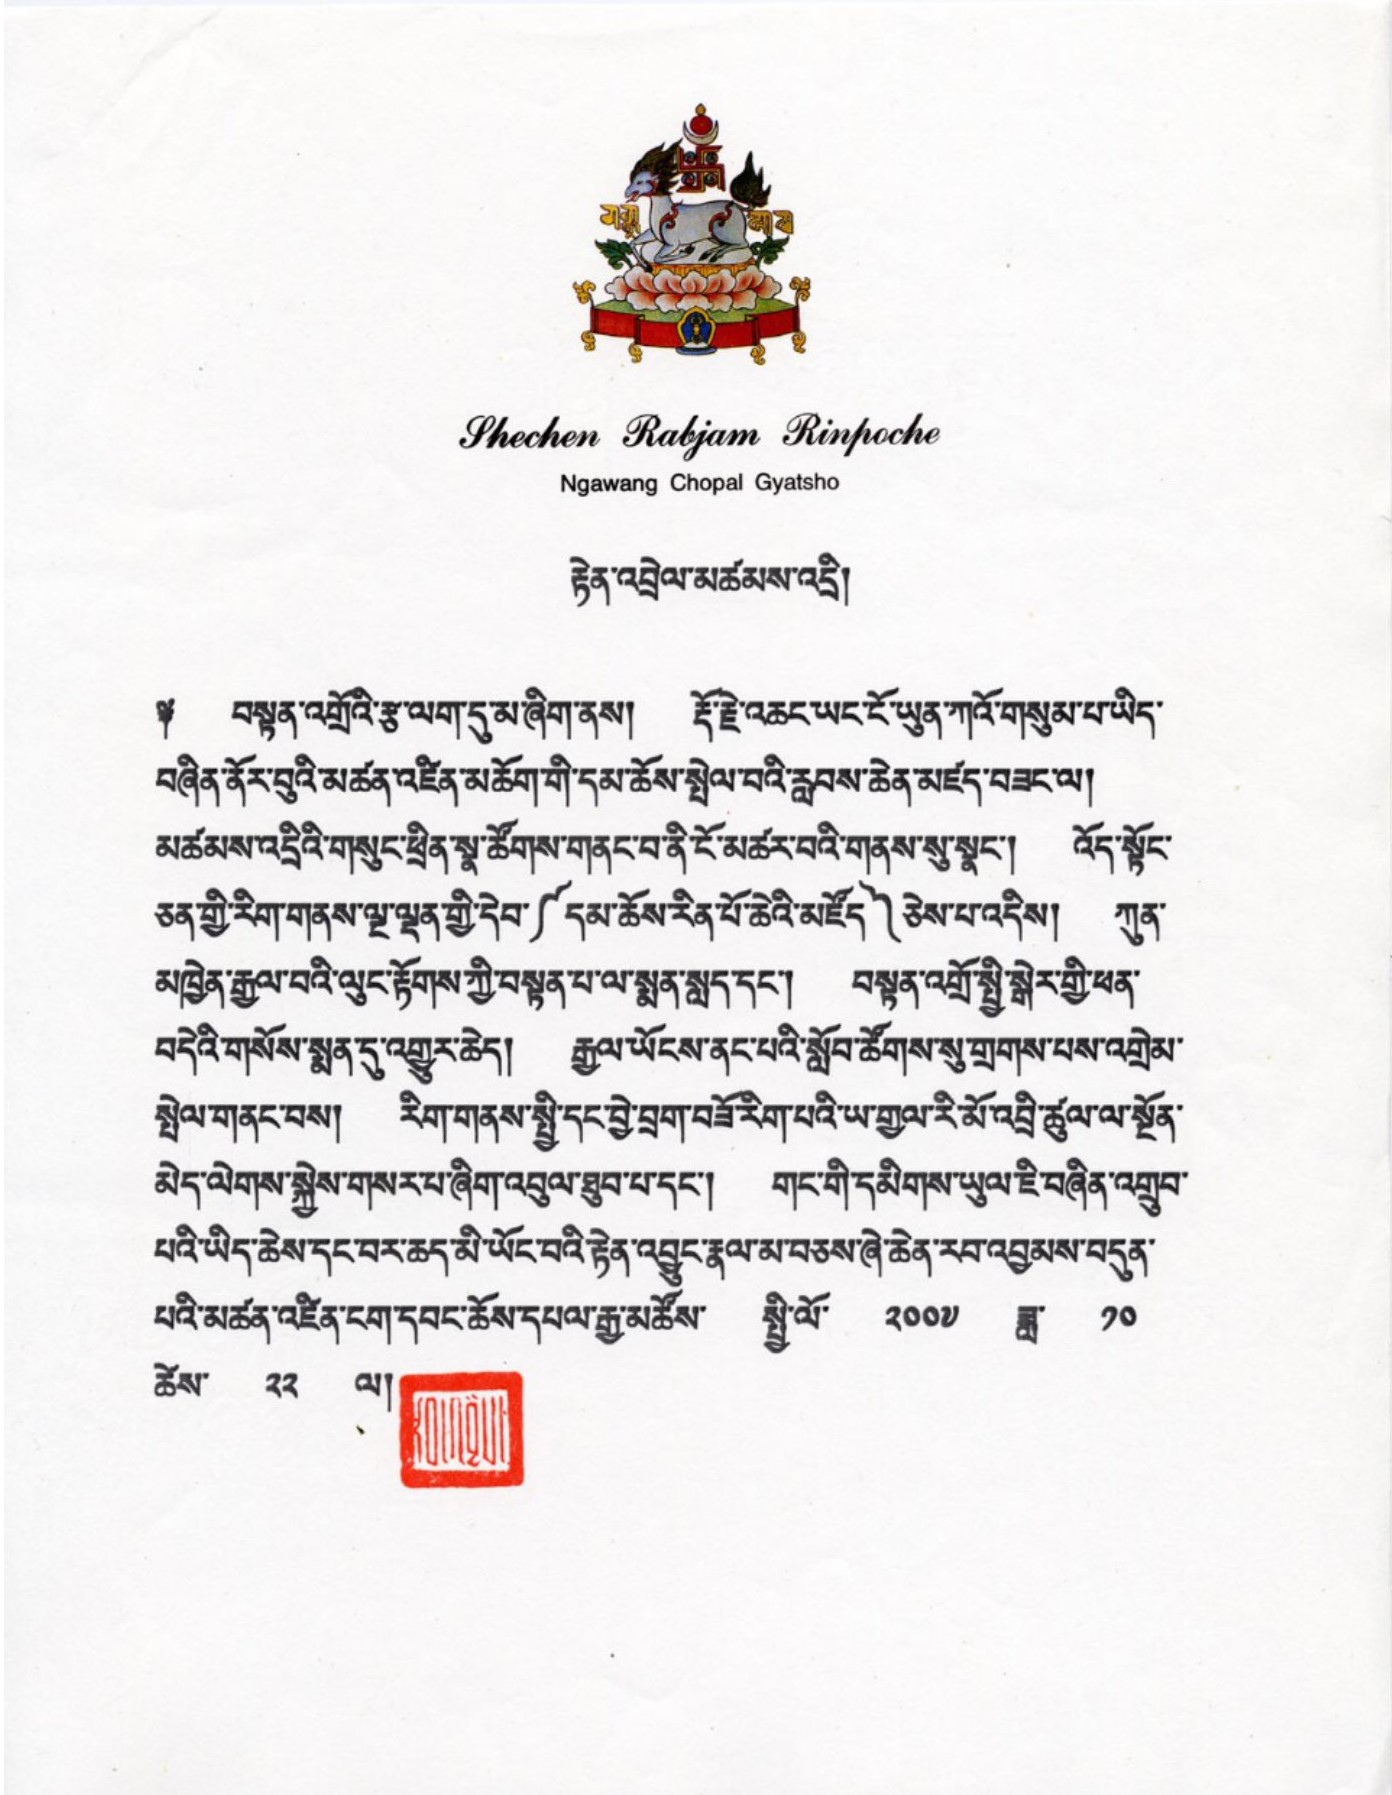 Shechen Rabjam Rinpoche
Ngawang Chopal Gyatsho
རྟེན་འབྲེལ་མཚམས་འདྲི།
༄ བསྟན་འགྲོའི་རྩ་ལག་དུ་མ་ཞིག་ནས། རྡོ་རྗེ་འཆང་ཡང་ངོ་ཡུན་ཀའོ་གསུམ་པ་ཡིད་
བཞིན་ནོར་བུའི་མཚན་འཛིན་མཆོག་གི་དམ་ཆོས་སྤེལ་བའི་རླབས་ཆེན་མཛད་བཟང་ལ།
མཚམས་འདྲིའི་གསུང་ཕྲིན་སྣ་ཚོགས་གནང་བ་ནི་ངོ་མཚར་བའི་གནས་སུ་སྣང་། འོད་སྟོང་
ཅན་གྱི་རིག་གནས་ལྔ་ལྡན་གྱི་དེབ་༼དམ་ཆོས་རིན་པོ་ཆེའི་མཛོད༽ཅེས་པ་འདིས། ཀུན་
མཁྱེན་རྒྱལ་བའི་ལུང་རྟོགས་ཀྱི་བསྟན་པ་ལ་སྨན་སླད་དང་། བསྟན་འགྲོ་སྤྱི་སྒེར་གྱི་ཕན་
བདེའི་གསོས་སྨན་དུ་འགྱུར་ཆེད། རྒྱལ་ཡོངས་ནང་པའི་སློབ་ཚོགས་སུ་གྲགས་པས་འགྲེམ་
སྤེལ་གནང་བས། རིག་གནས་སྤྱི་དང་བྱེ་བྲག་བཟོ་རིག་པའི་ཡ་གྱལ་རི་མོ་འབྲི་ཚུལ་ལ་སྔོན་
མེད་ལེགས་སྐྱེས་གསར་པ་ཞིག་འབུལ་ཐུབ་པ་དང་། གང་གི་དམིགས་ཡུལ་ཇི་བཞིན་འགྲུབ་
པའི་ཡིད་ཆེས་དང་བར་ཆད་མི་ཡོང་བའི་རྟེན་འབྱུང་རྣལ་མ་བཅས་ཞེ་ཆེན་རབ་འབྱམས་བདུན་
པའི་མཚན་འཛིན་ངག་དབང་ཆོས་དཔལ་རྒྱ་མཚོས་ སྤྱི་ལོ་ ༢༠༠༦ ཟླ་ ༡༠
ཚེས་ ༢༢ ལ།